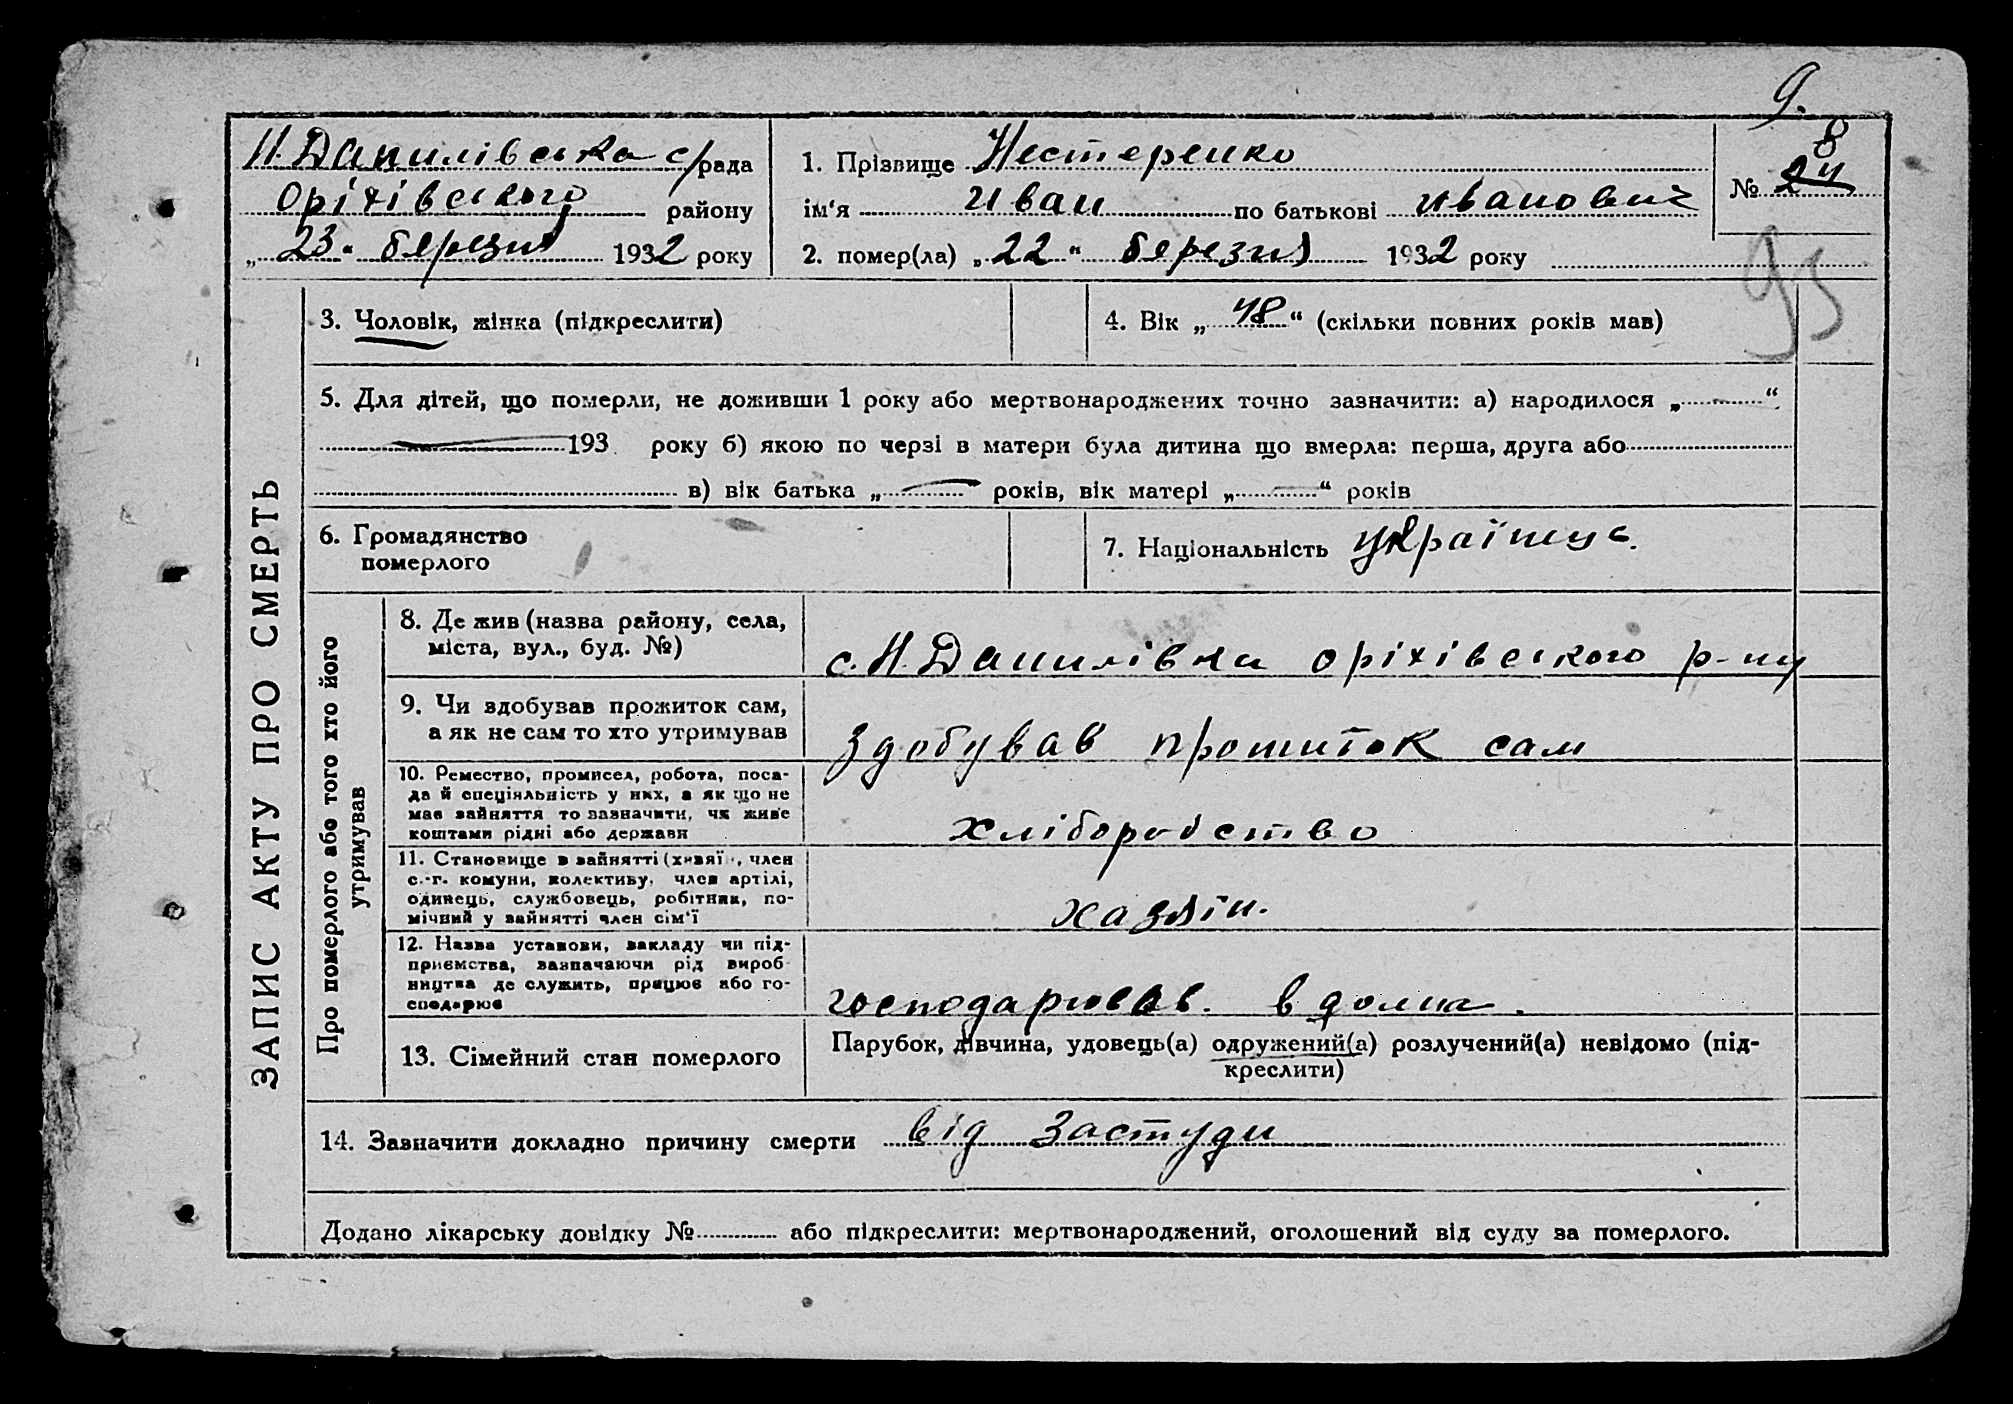 9.
Н. Данилівська с/рада
Оріхівського району
„ 23 " березня 1932 року
1. Прізвище Нестеренко
ім‘я Иван по батькові Иванович
2. помер(ла) „ 22 " березня 1932 року
8
№ 24
95
ЗАПИС АКТУ ПРО СМЕРТЬ
3. Чоловік, жінка (підкреслити)
4. Вік „ 48 “ (скільки повних років мав)
5. Для дітей, що померли, не доживши 1 року або мертвонароджених точно зазначити: а) народилося „ “
193 року б) якою по черзі в матери була дитина що вмерла: перша, друга або
в) вік батька „ " років, вік матері „ “ років
6. Громадянство
померлого
7. Національність українець.
Про померлого або того хто його
утримував
8. Де жив (назва району, села,
міста, вул., буд. №)
с. Н. Данилівка оріхівського р-ну
9. Чи здобував прожиток сам,
а як не сам то хто утримував
здобував прошиток сам
10. Ремество, промисел, робота, поса-
да й спеціяльність у них, а як що не
має зайняття то зазначити, чи живе
коштами рідні або держави
хліборобство
11. Становище в зайнятті (хазяїн, член
с.-г. комуни, колективу, член артілі,
одинець, службовець, робітник, по-
мічний у зайнятті член сім‘ї
хазяїн.
12. Назва установи, закладу чи під-
приємства, зазначаючи рід вироб-
ництва де служить, працює або го-
сподарює
господарював. в дома.
13. Сімейний стан померлого
Парубок, дівчина, удовець(а) одружений(а) розлучений(а) невідомо (під-
креслити)
14. Зазначити докладно причину смерти від застуди
Додано лікарську довідку № або підкреслити: мертвонароджений, оголошений від суду за померлого.